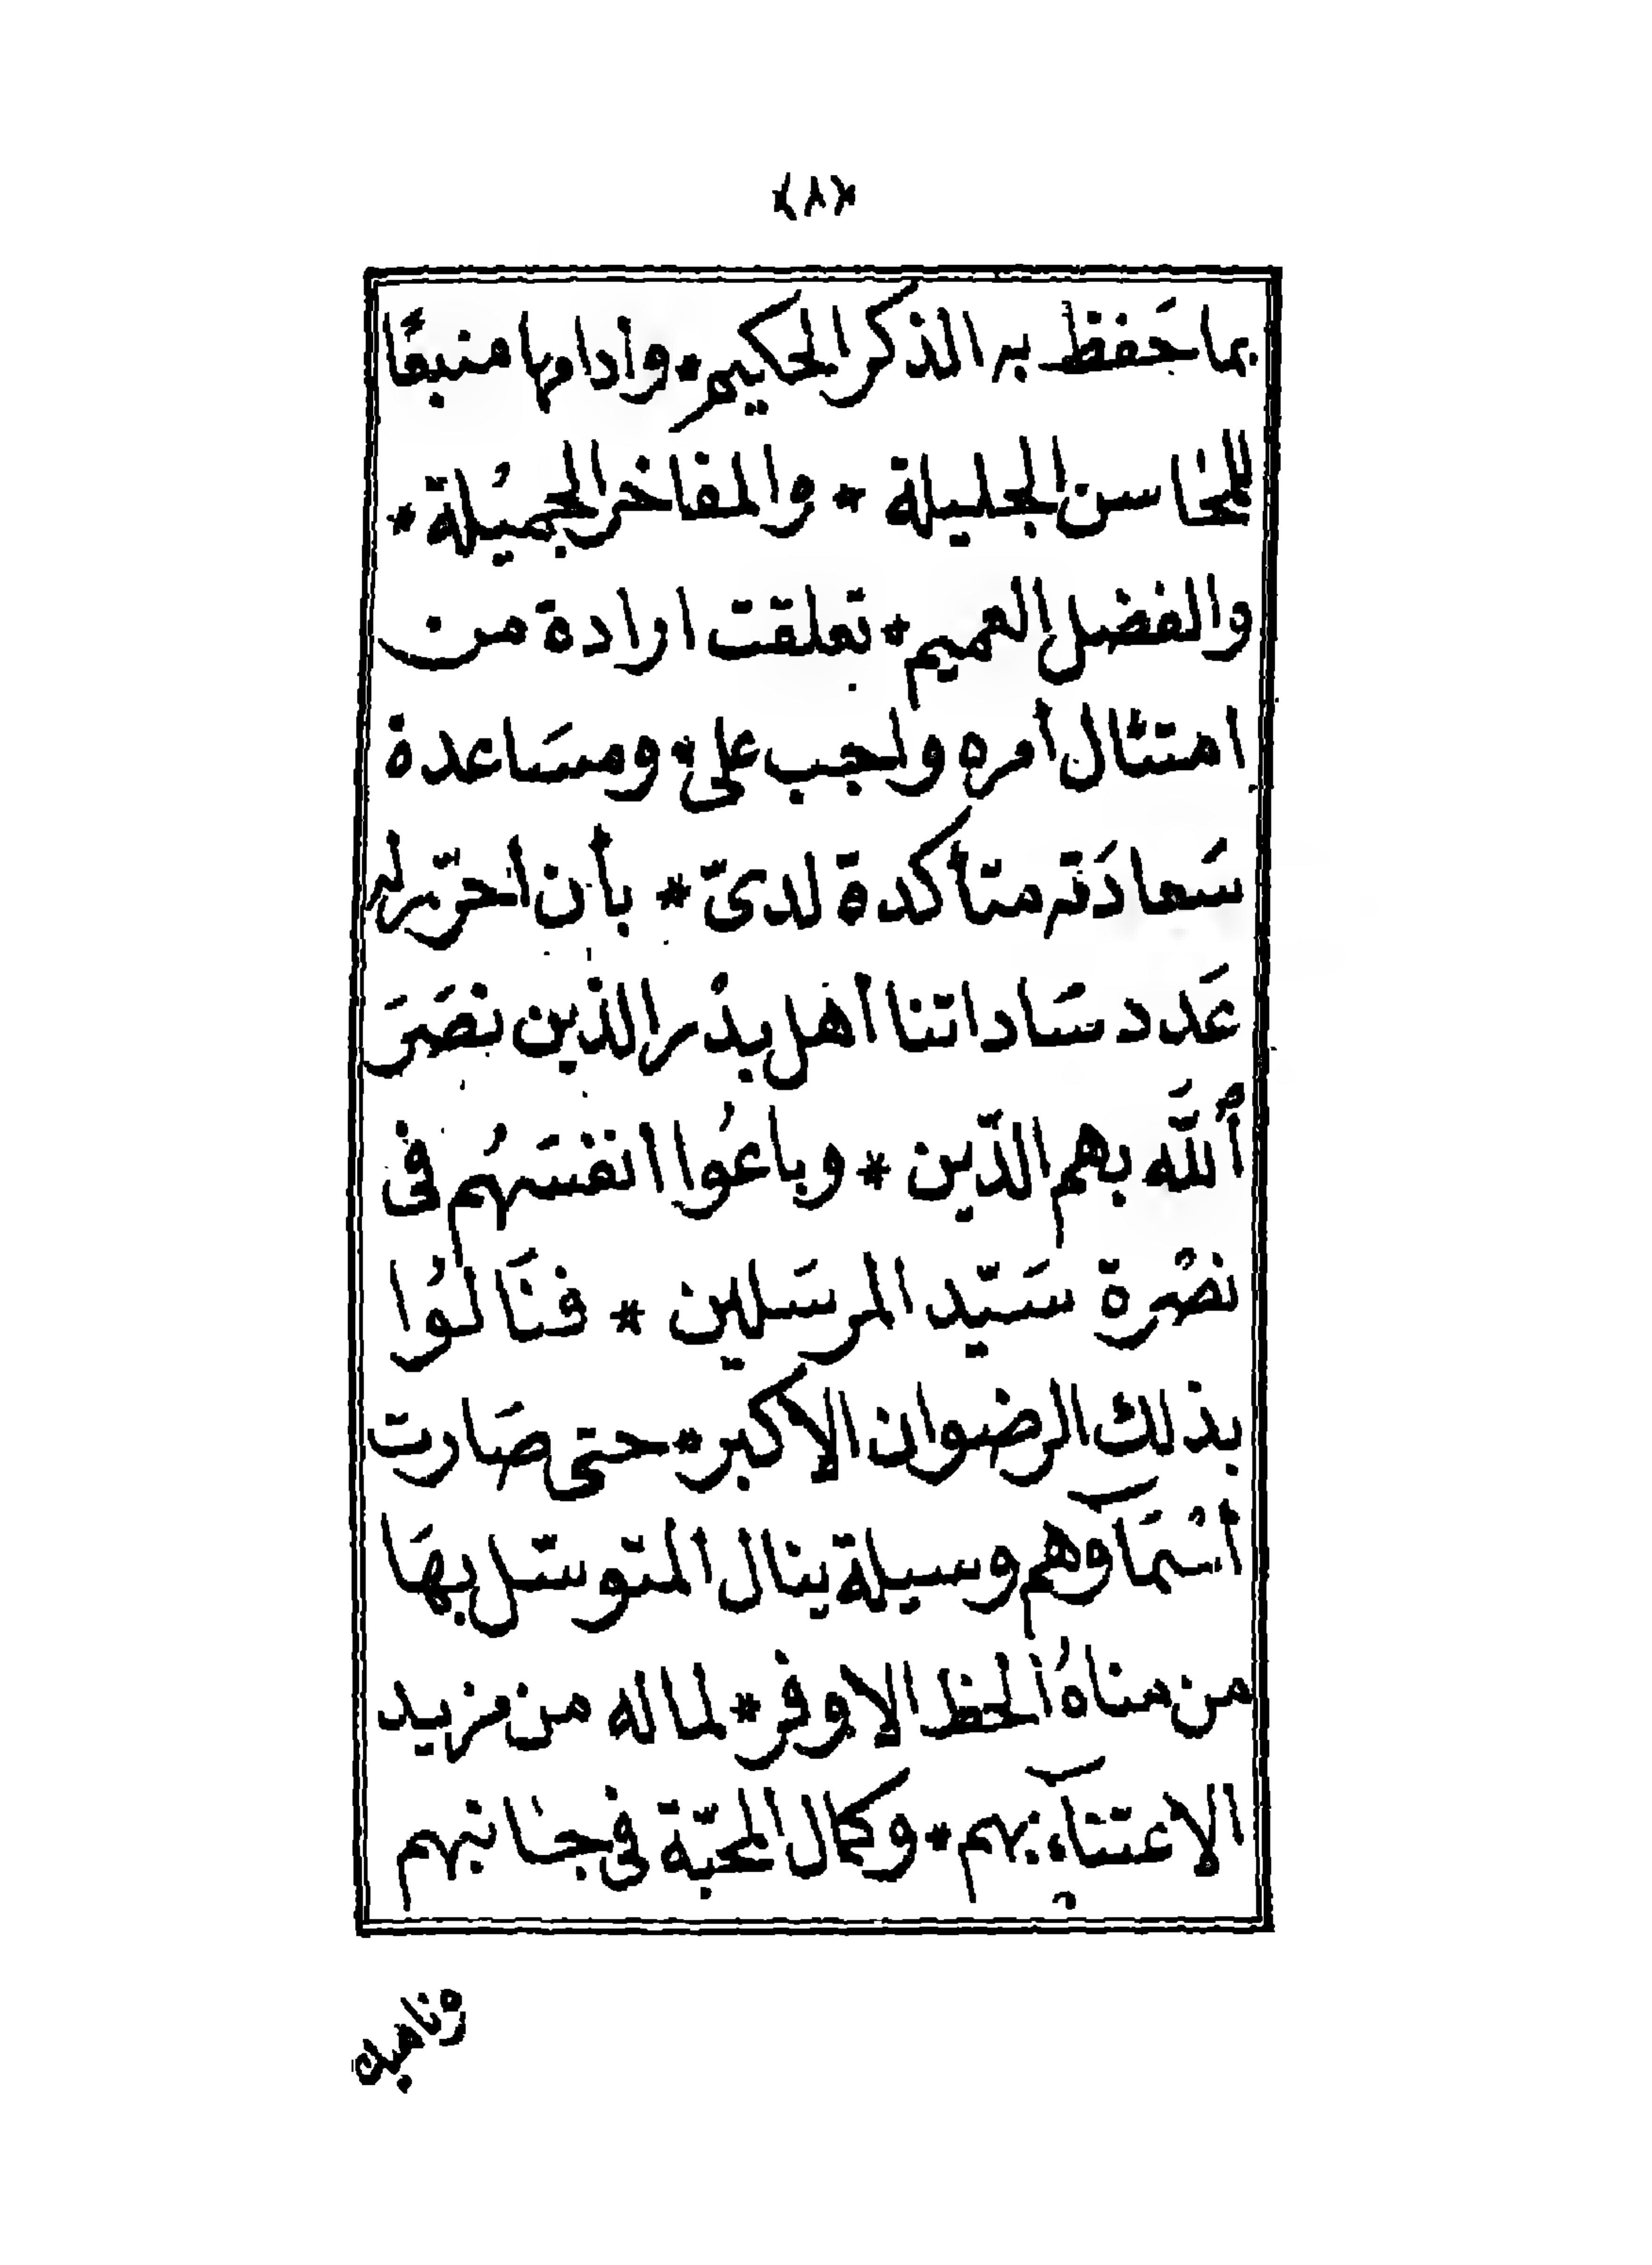 ﴿٨﴾
بما حَفظ به الذكر الحكيم * وأدامها منبعًا
للمحاسن الجليلة * والمفاخر الجميْلة *
والفضل العميم * تعلقت ارادة من
امتثال أمره واجب علىّ * ومسَاعدة
سَعادَته متأكدة لدىّ * بأن احرّر له
عَدد سَاداتنا أهل بدْر الذين نصَرَ
أُللَّه بهم الدّين * وباعُوا انفسَهُم فى
نصْرة سَيّد المرسَلين * فنَالوُا
بذلك الرضوان الاكبر * حتى صَارت
أسْمَآوهم وسيلة ينال المتوسّل بهَا
من مناهُ ألحظ الاوفر * لما له من مزيد
الاعتنآء بهم * وكمال المحبّة فى جَانبهم
وناهيك